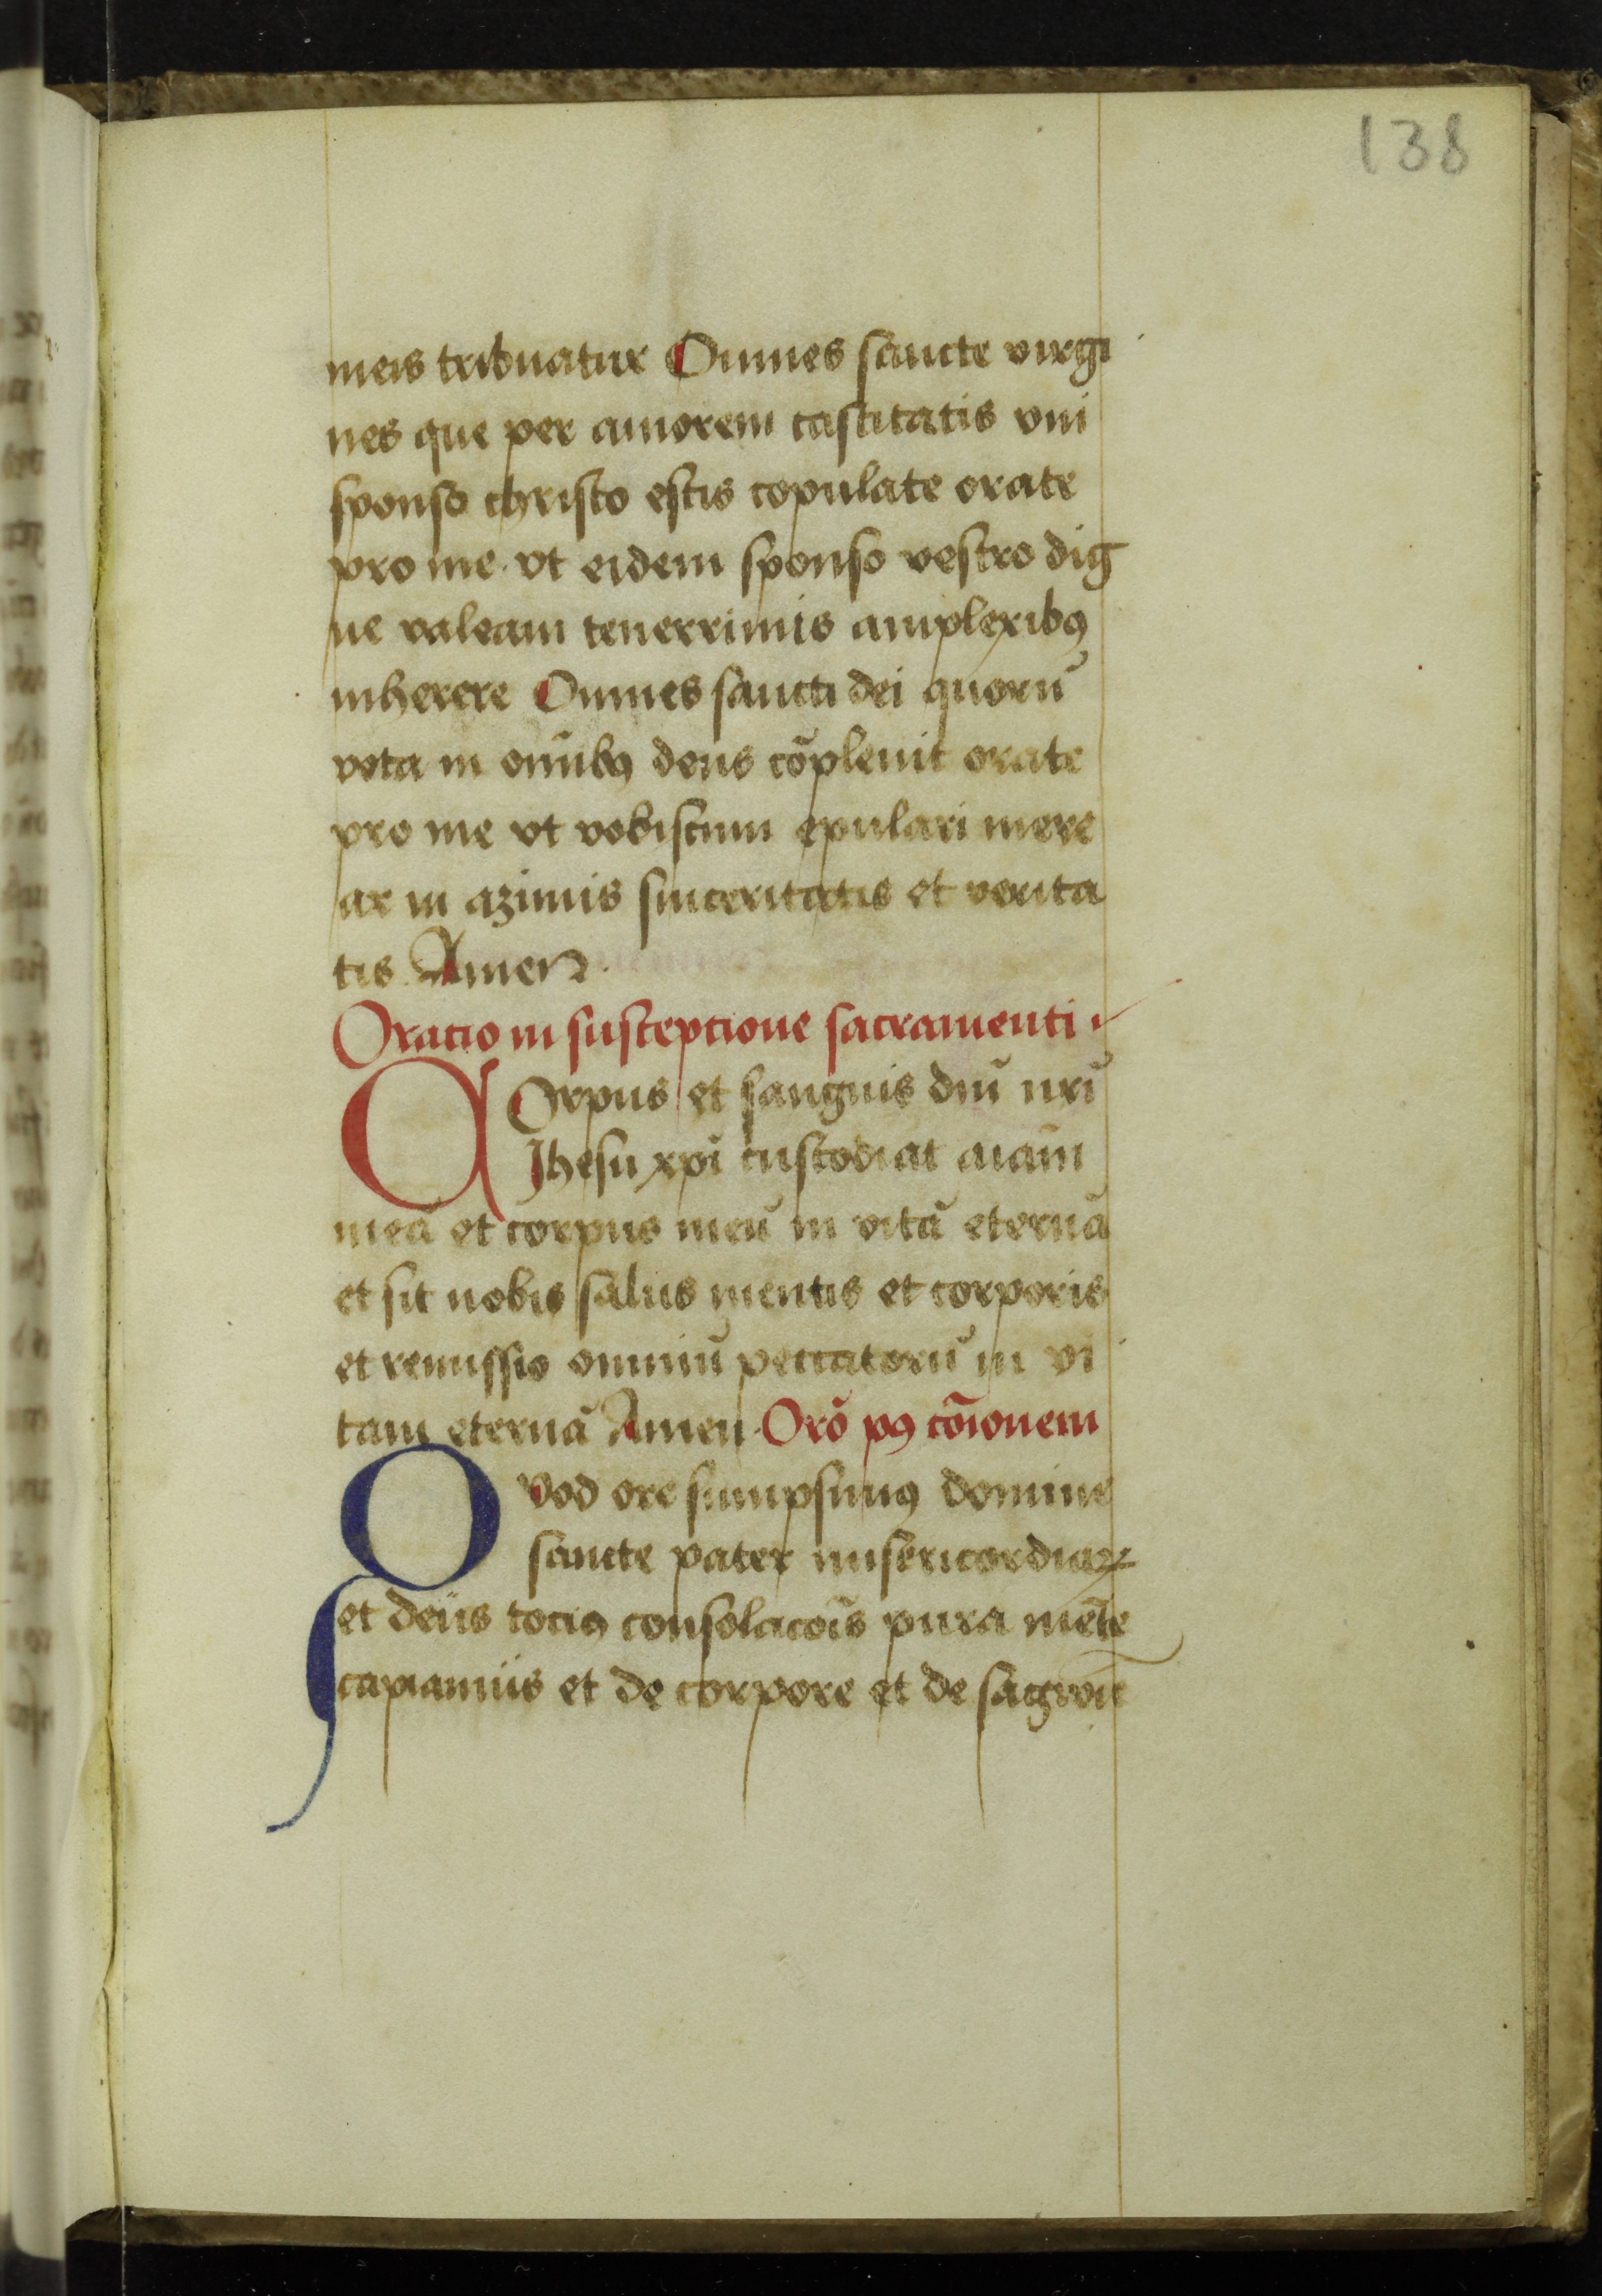 138
meis tribuatur Omnes sancte virgi
nes que per amorem castitatis vni
sponso christo estis copulate orate
pro me. vt eidem sponso vestro dig
ne valeam tenerrimis amplexibꝯ
inherere Omnes sancti dei quorū
vota in om̄ibꝯ deus cōpleuit orate
pro me vt vobiscum epulari mere
ar in azimis sinceritatis et verita
tis Amen.
Oratio in susceptione sacramenti
COrpus et sanguis dn̄i nr̄i
Jhesu xp̄i custodiat aīam
meā et corpus meū in vitā eternā
et sit nobis salus mentis et corporis
et remissio omniū peccatorū in vi
tam eternā Amen. Orō pꝯ cōīonem
Qvod ore sumpsimꝯ domine
sancte pater misericordiaꝝ
et deus tociꝯ consolacoīs pura mēte
capiamus et de corpore et de